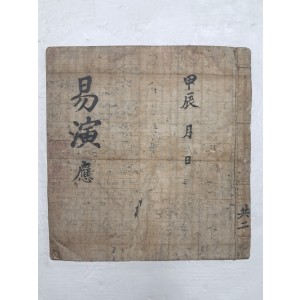 甲辰 月 日
易演
應
共二